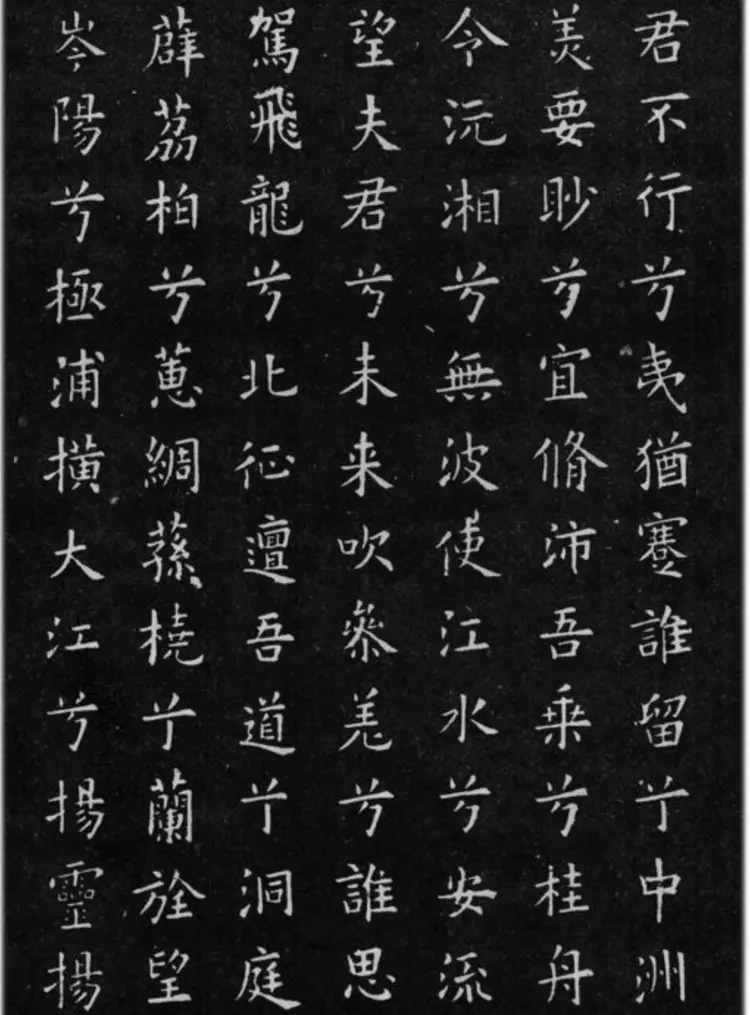 君不行兮夷猶蹇誰留兮中洲
美要眇兮宜脩沛吾乗兮桂舟
令沅湘兮無波使江水兮安流
望夫君兮未来吹參羌兮誰思
駕飛龍兮北征邅吾道兮洞庭
薜荔柏兮蕙綢蓀橈兮蘭旌望
岑陽兮極浦横大江兮揚靈揚